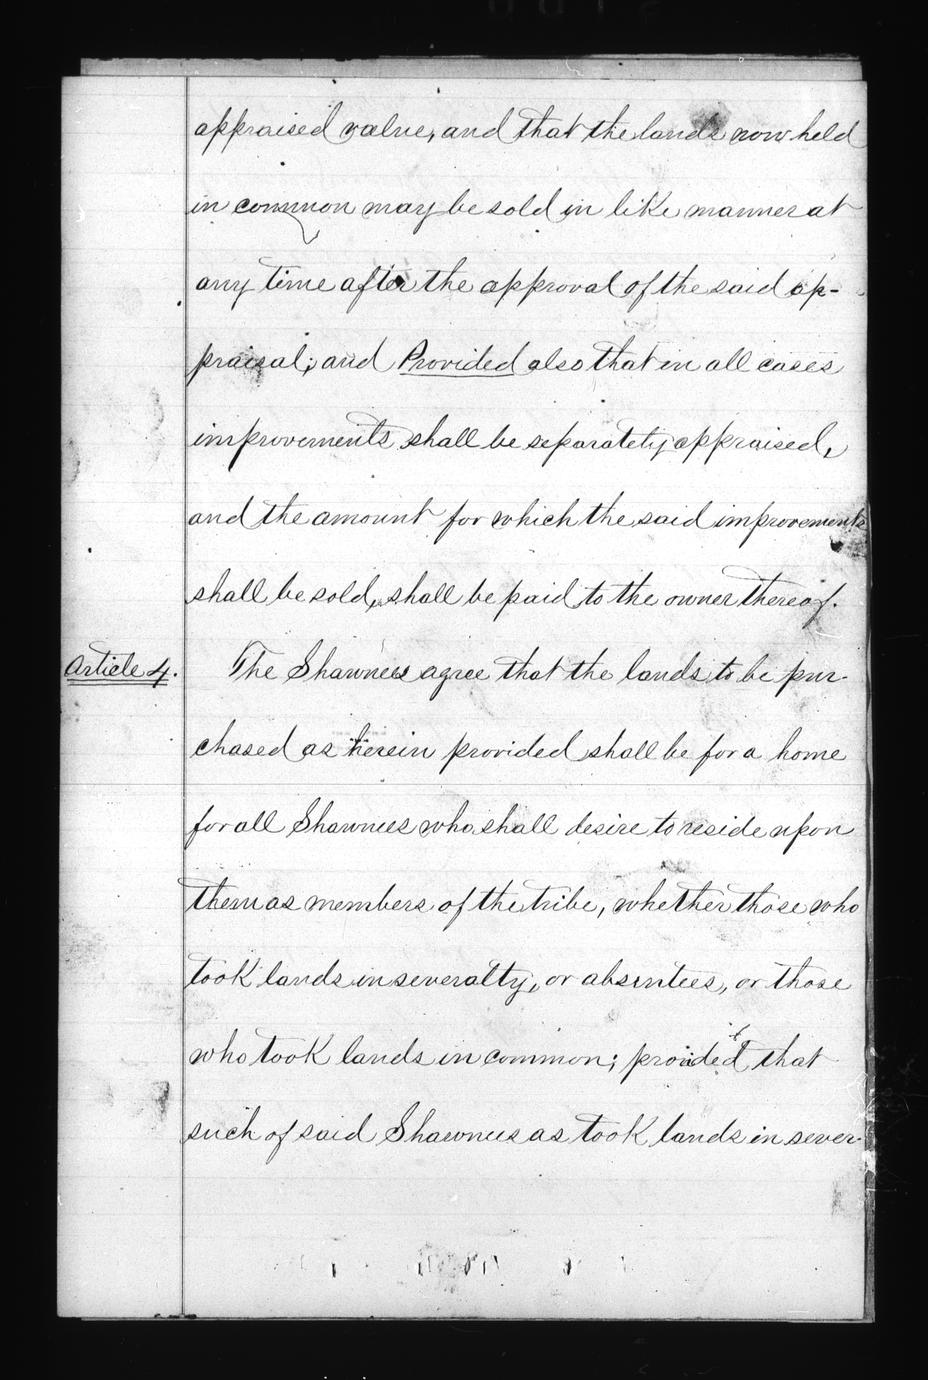 appraised value, and that the lands now held
in common may be sold in like manner at
any time after the approval of the said ap-
praisal; and Provided also that in all cases
improvements shall be separately appraised,
and the amount for which the said improvements
shall be sold, shall be paid to the owner thereof.
Article 4. The Shawnees agree that the lands to be pur-
chased as herein provided shall be for a home
for all Shawnees who shall desire to reside upon
them as members of the tribe, whether those who
took lands in severalty, or absentees, or those
who took lands in common; provided that
such of said Shawnees as took lands in sever-